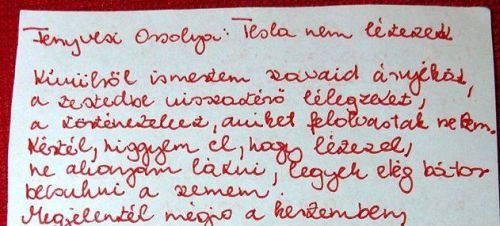 Fenyvesi Orsolya: Tesla nem létezett
Kívülről ismertem szavaid árnyékát,
a testedbe visszatérő lélegzetet,
a történeteket, amiket felolvastak nekem.
Kértél, higgyem el, hogy létezel,
ne akarjam látni, legyek elég bátor
becsukni a szemem.
Megjelentél mégis a kertemben,